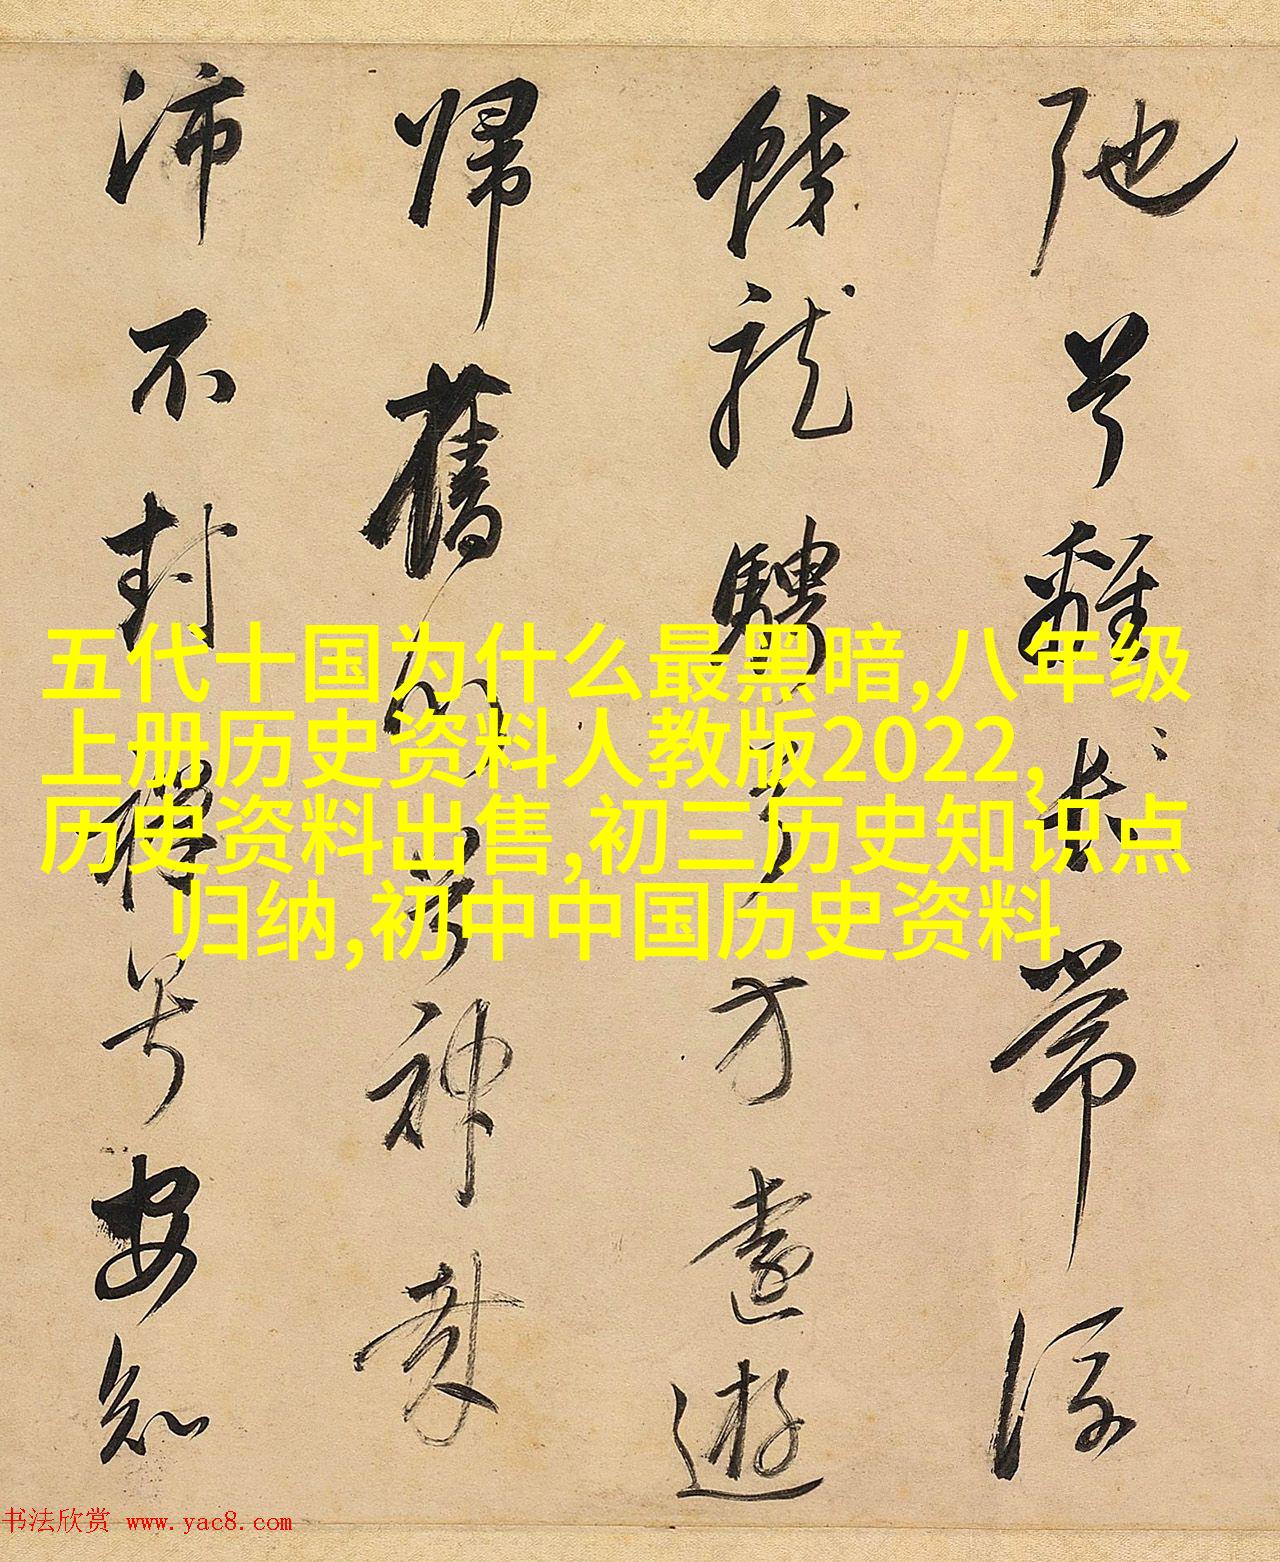 弛兮離常流
蛟龍騁兮方遠遊
歸舊川兮神哉
沛不封禪兮安知
五代十国为什么最黑暗,八年级
上册历史资料人教版2022,
历史资料出售,初三历史知识点
归纳,初中中国历史资料
书法欣赏 www.yac8.com